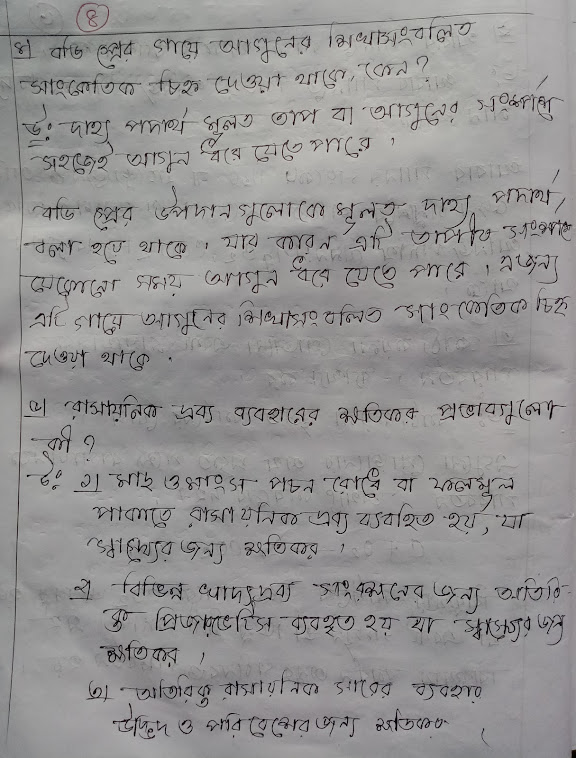 ৪
৪। বডি স্প্রের গায়ে আগুনের শিখাসংবলিত
সাংকেতিক চিহ্ন দেওয়া থাকে, কেন?
উ: দাহ্য পদার্থ মূলত তাপ বা আগুনের সংস্পর্শে
সহজেই আগুন ধরে যেতে পারে।
বডি স্প্রের উপাদানগুলোকে মূলত দাহ্য পদার্থ,
বলা হয়ে থাকে। যার কারন এটি তাপীয় সংস্পর্শে
যেকোনো সময় আগুন ধরে যেতে পারে। এজন্য
এটি গায়ে আগুনের শিখাসংবলিত সাংকেতিক চিহ্ন
দেওয়া থাকে।
৫। রাসায়নিক দ্রব্য ব্যবহারের ক্ষতিকর প্রভাবগুলো
কী?
উ: ১। মাছ ও মাংস পচন রোধে বা ফলেমুল
পাকাতে রাসায়নিক দ্রব্য ব্যবহিত হয়, যা
স্বাস্থ্যের জন্য ক্ষতিকর।
২। বিভিন্ন খাদ্যদ্রব্য সংরক্ষনের জন্য অতিরি-
ক্ত প্রিজারভেটিস ব্যবহৃত হয় যা স্বাস্থ্যের জন্য
ক্ষতিকর।
৩। অতিরিক্ত রাসায়নিক সারের ব্যবহার
উদ্ভিদ ও পরিবেশের জন্য ক্ষতিকর।